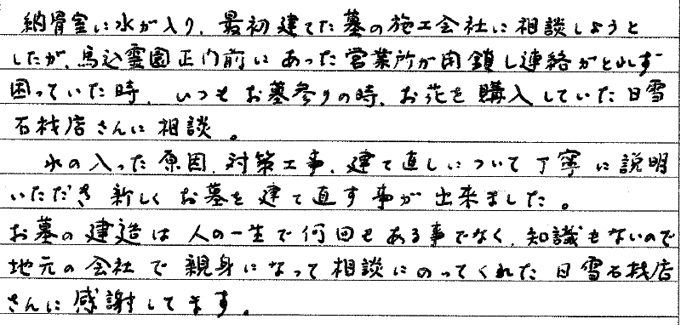 納骨室に水が入り、最初建てた墓の施工会社に相談しようと
したが、馬込霊園正門前にあった営業所が閉鎖し連絡がとれず
困っていた時、いつもお墓参りの時、お花を購入していた日雪
石材店さんに相談。
水の入った原因、対策工事、建て直しについて丁寧に説明
いただき新しくお墓を建て直す事が出来ました。
お墓の建造は人の一生で何回もある事でなく、知識もないので
地元の会社で親身になって相談にのってくれた日雪石材店
さんに感謝してます。